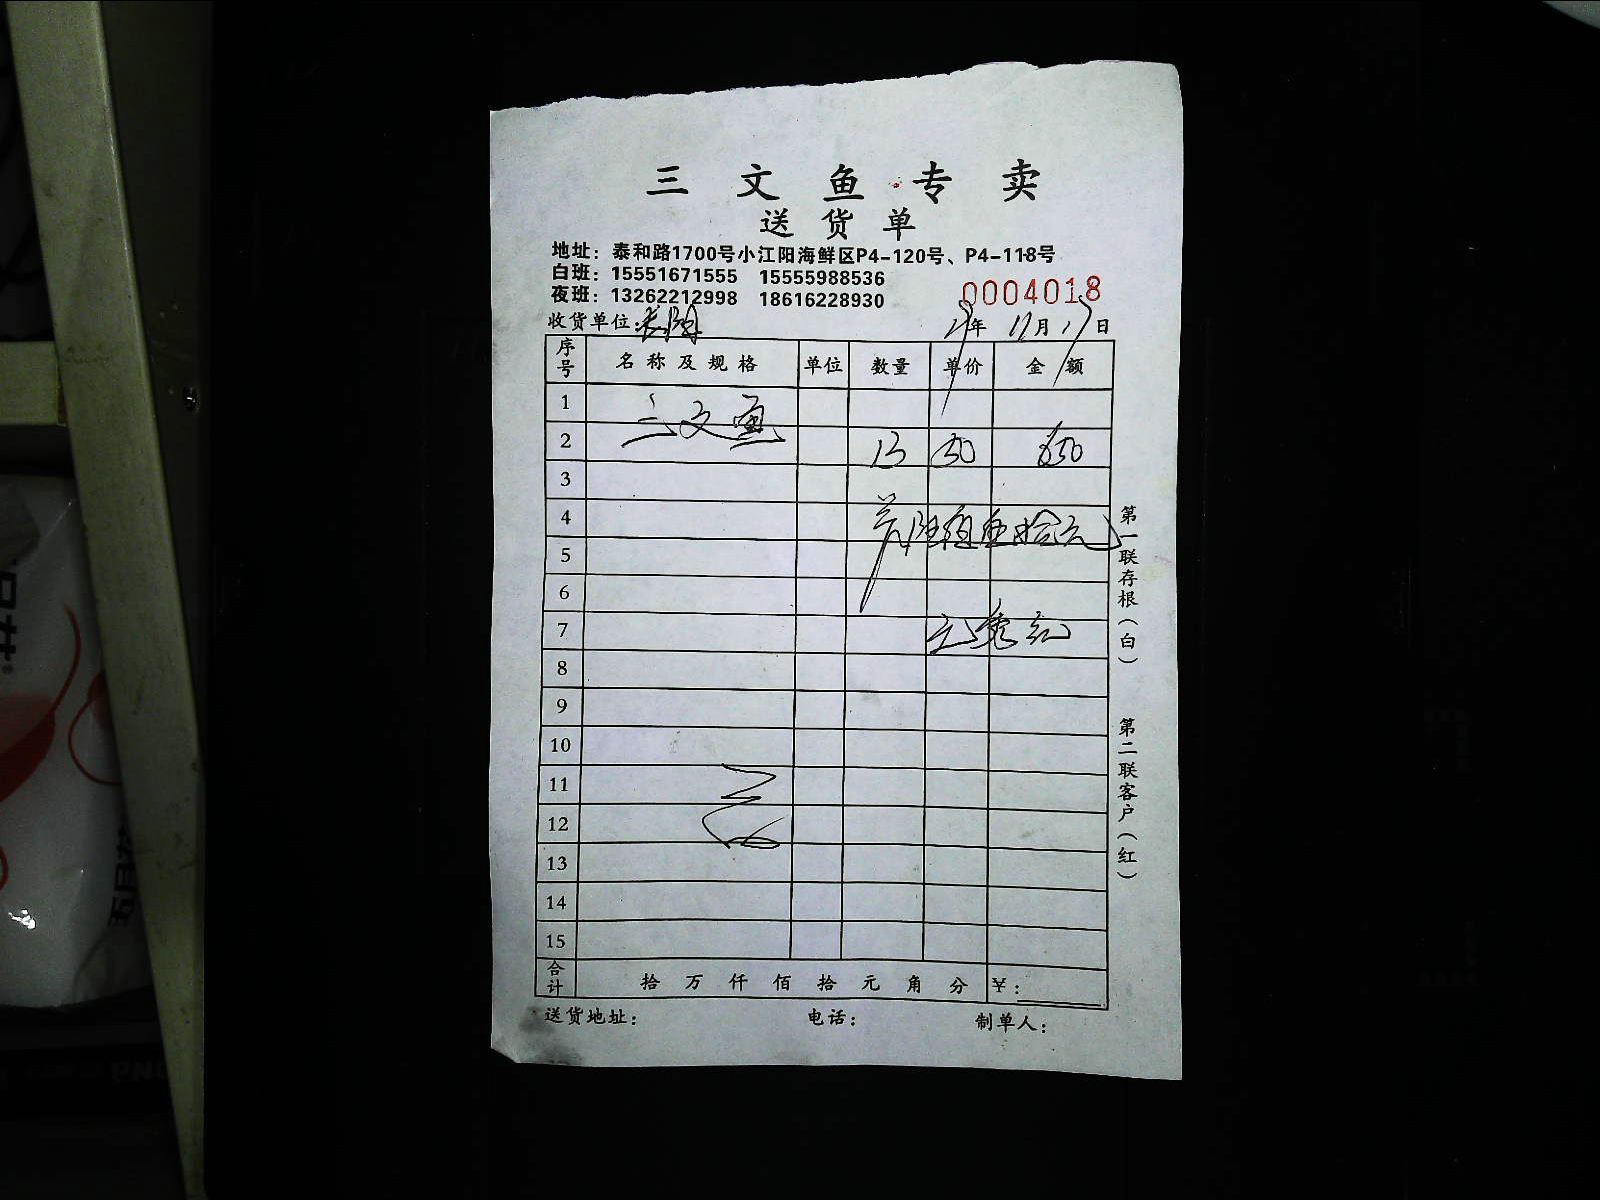 三文鱼专卖
送货单
地址：泰和路1700号小江阳海鲜区P4-120号、P4-118号
白班：15551671555 15555988536
夜班：13262212998 18616228930
0004018
收货单位： 年 11月17日
序号 名称及规格 单位 数量 单价 金额
1
三文鱼
2 13 50 650
3
4 陆佰伍拾元
5
6
7
8
9
10
11
12
13
14
15
合计 拾 万 仟 佰 拾 元 角 分 ￥：
送货地址： 电话： 制单人：
第一联存根（白）
第二联客户（红）